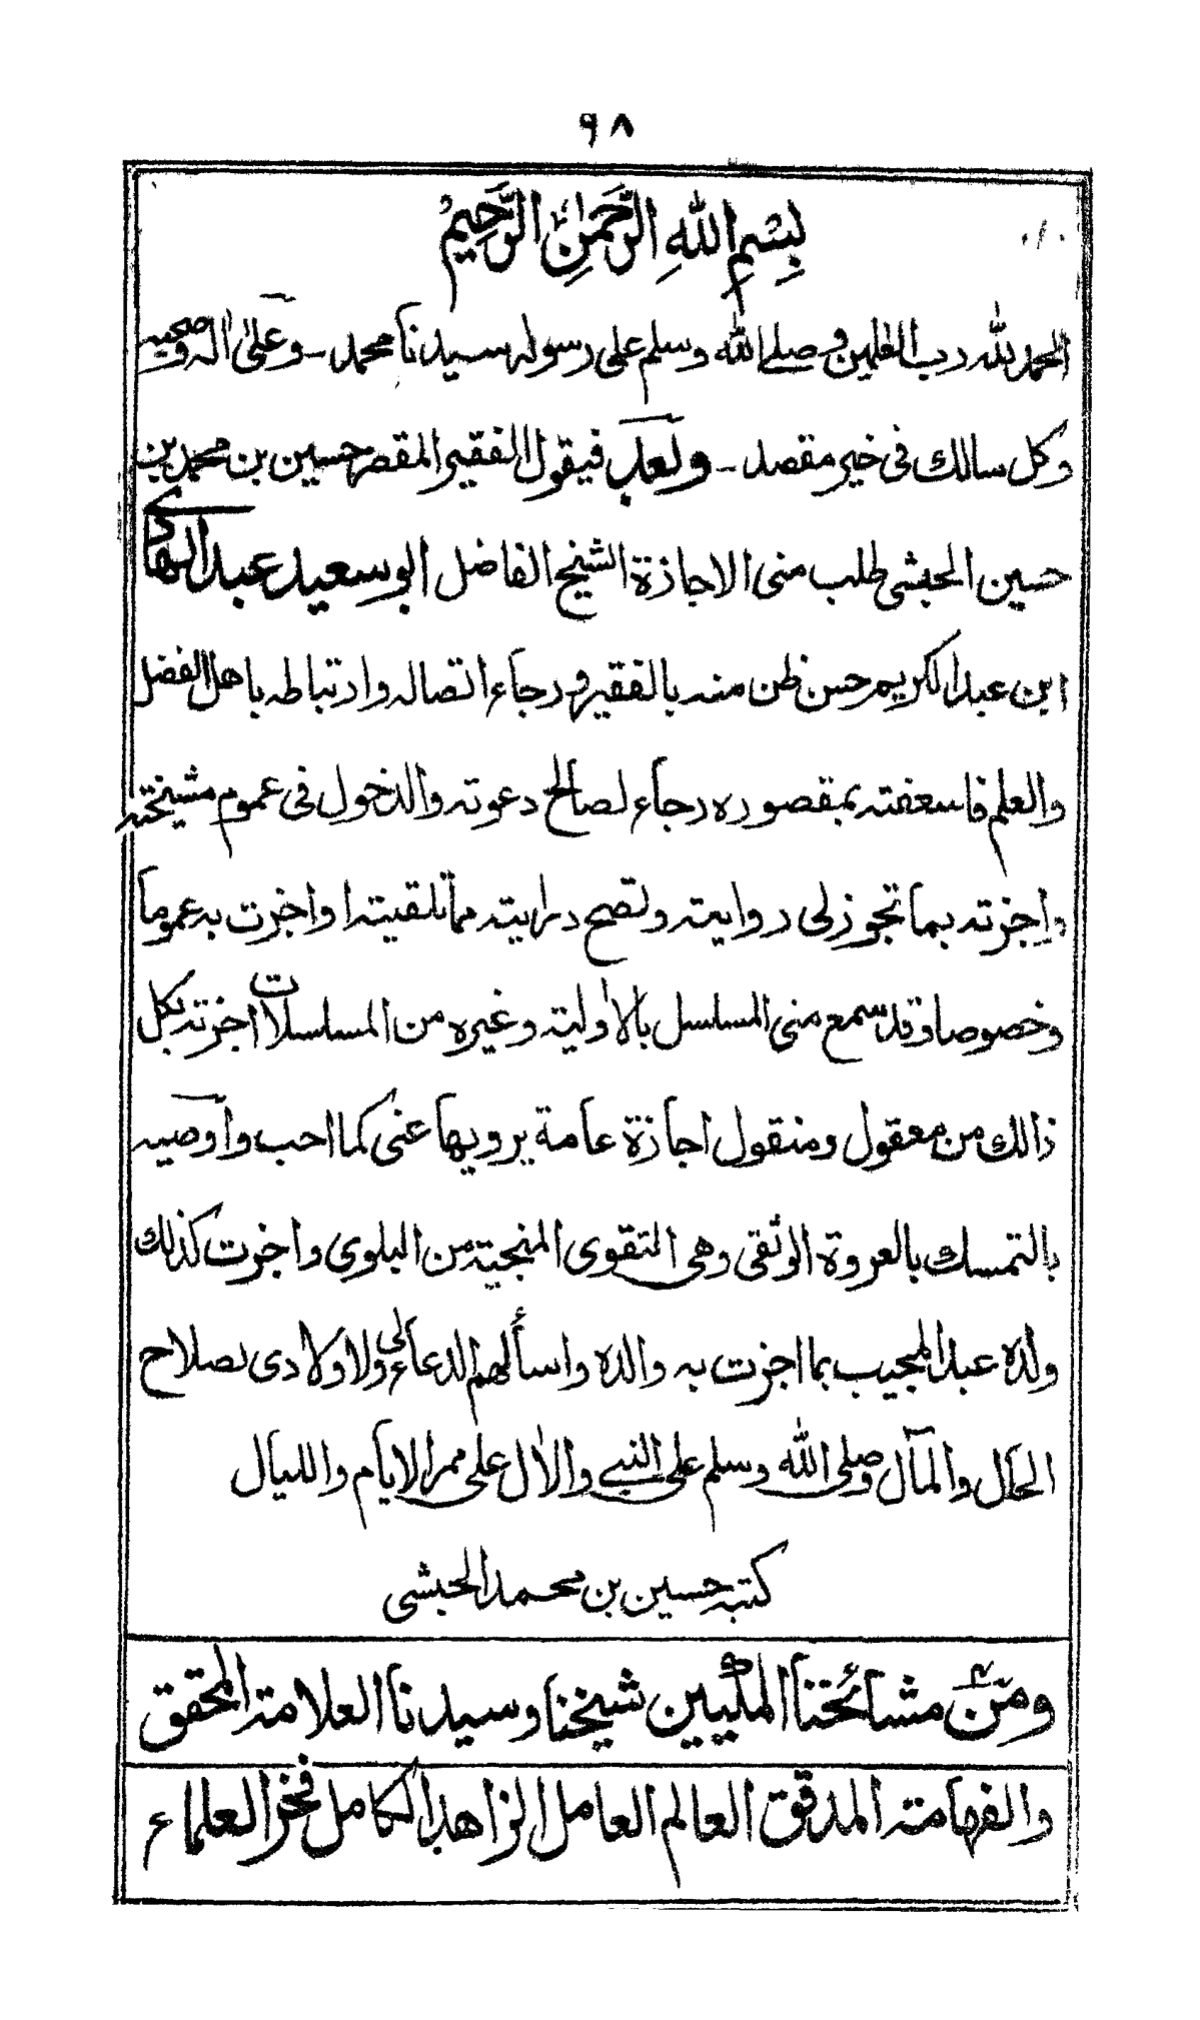 ٩٨
بِسْمِ اللهِ الرَّحْمٰنِ الرَّحِيْمِ
الحمد لله رب العٰلمين و صلى الله وسلم على رسوله سيدنا محمد ـ وعلىٰ اٰله وصحبه
وكل سالك فى خير مقصد ـ وبعد فيقول الفقير المقصر حسين بن محمد بن
حسين الحبشى طلب منى الاجازة الشيخ الفاضل ابو سعيد عبد الهادى
ابن عبد الكريم حسن ظن منه بالفقير و رجاء اتصاله وارتباطه باهل الفضل
والعلم فاسعفته بمقصوره رجاء لصالح دعوته والدخول فى عموم مشيخته
واجزته بما تجوز لى روايته وتصح درايته مما تلقيته او اجزت به عموما
وخصوصا وقد سمع منى المسلسل بالاولية وغيره من المسلسلات اجزته بكل
ذالك من معقول ومنقول اجازة عامة يرويها عنى كما احب واوصيه
بالتمسك بالعروة الوثقى وهى التقوى المنجية من البلوى واجزت كذلك
ولده عبد المجيب بما اجزت به والده واسألهم الدعاء لى ولاولادى بصلاح
الحال والمآل وصلى الله وسلم على النبى والاٰل على ممر الايام والليال
كتبه حسين بن محمد الحبشى
ومن مشائخنا المكيين شيخنا وسيدنا العلامة المحقق
والفهامة المدقق العالم العامل الزاهد الكامل فخر العلماء